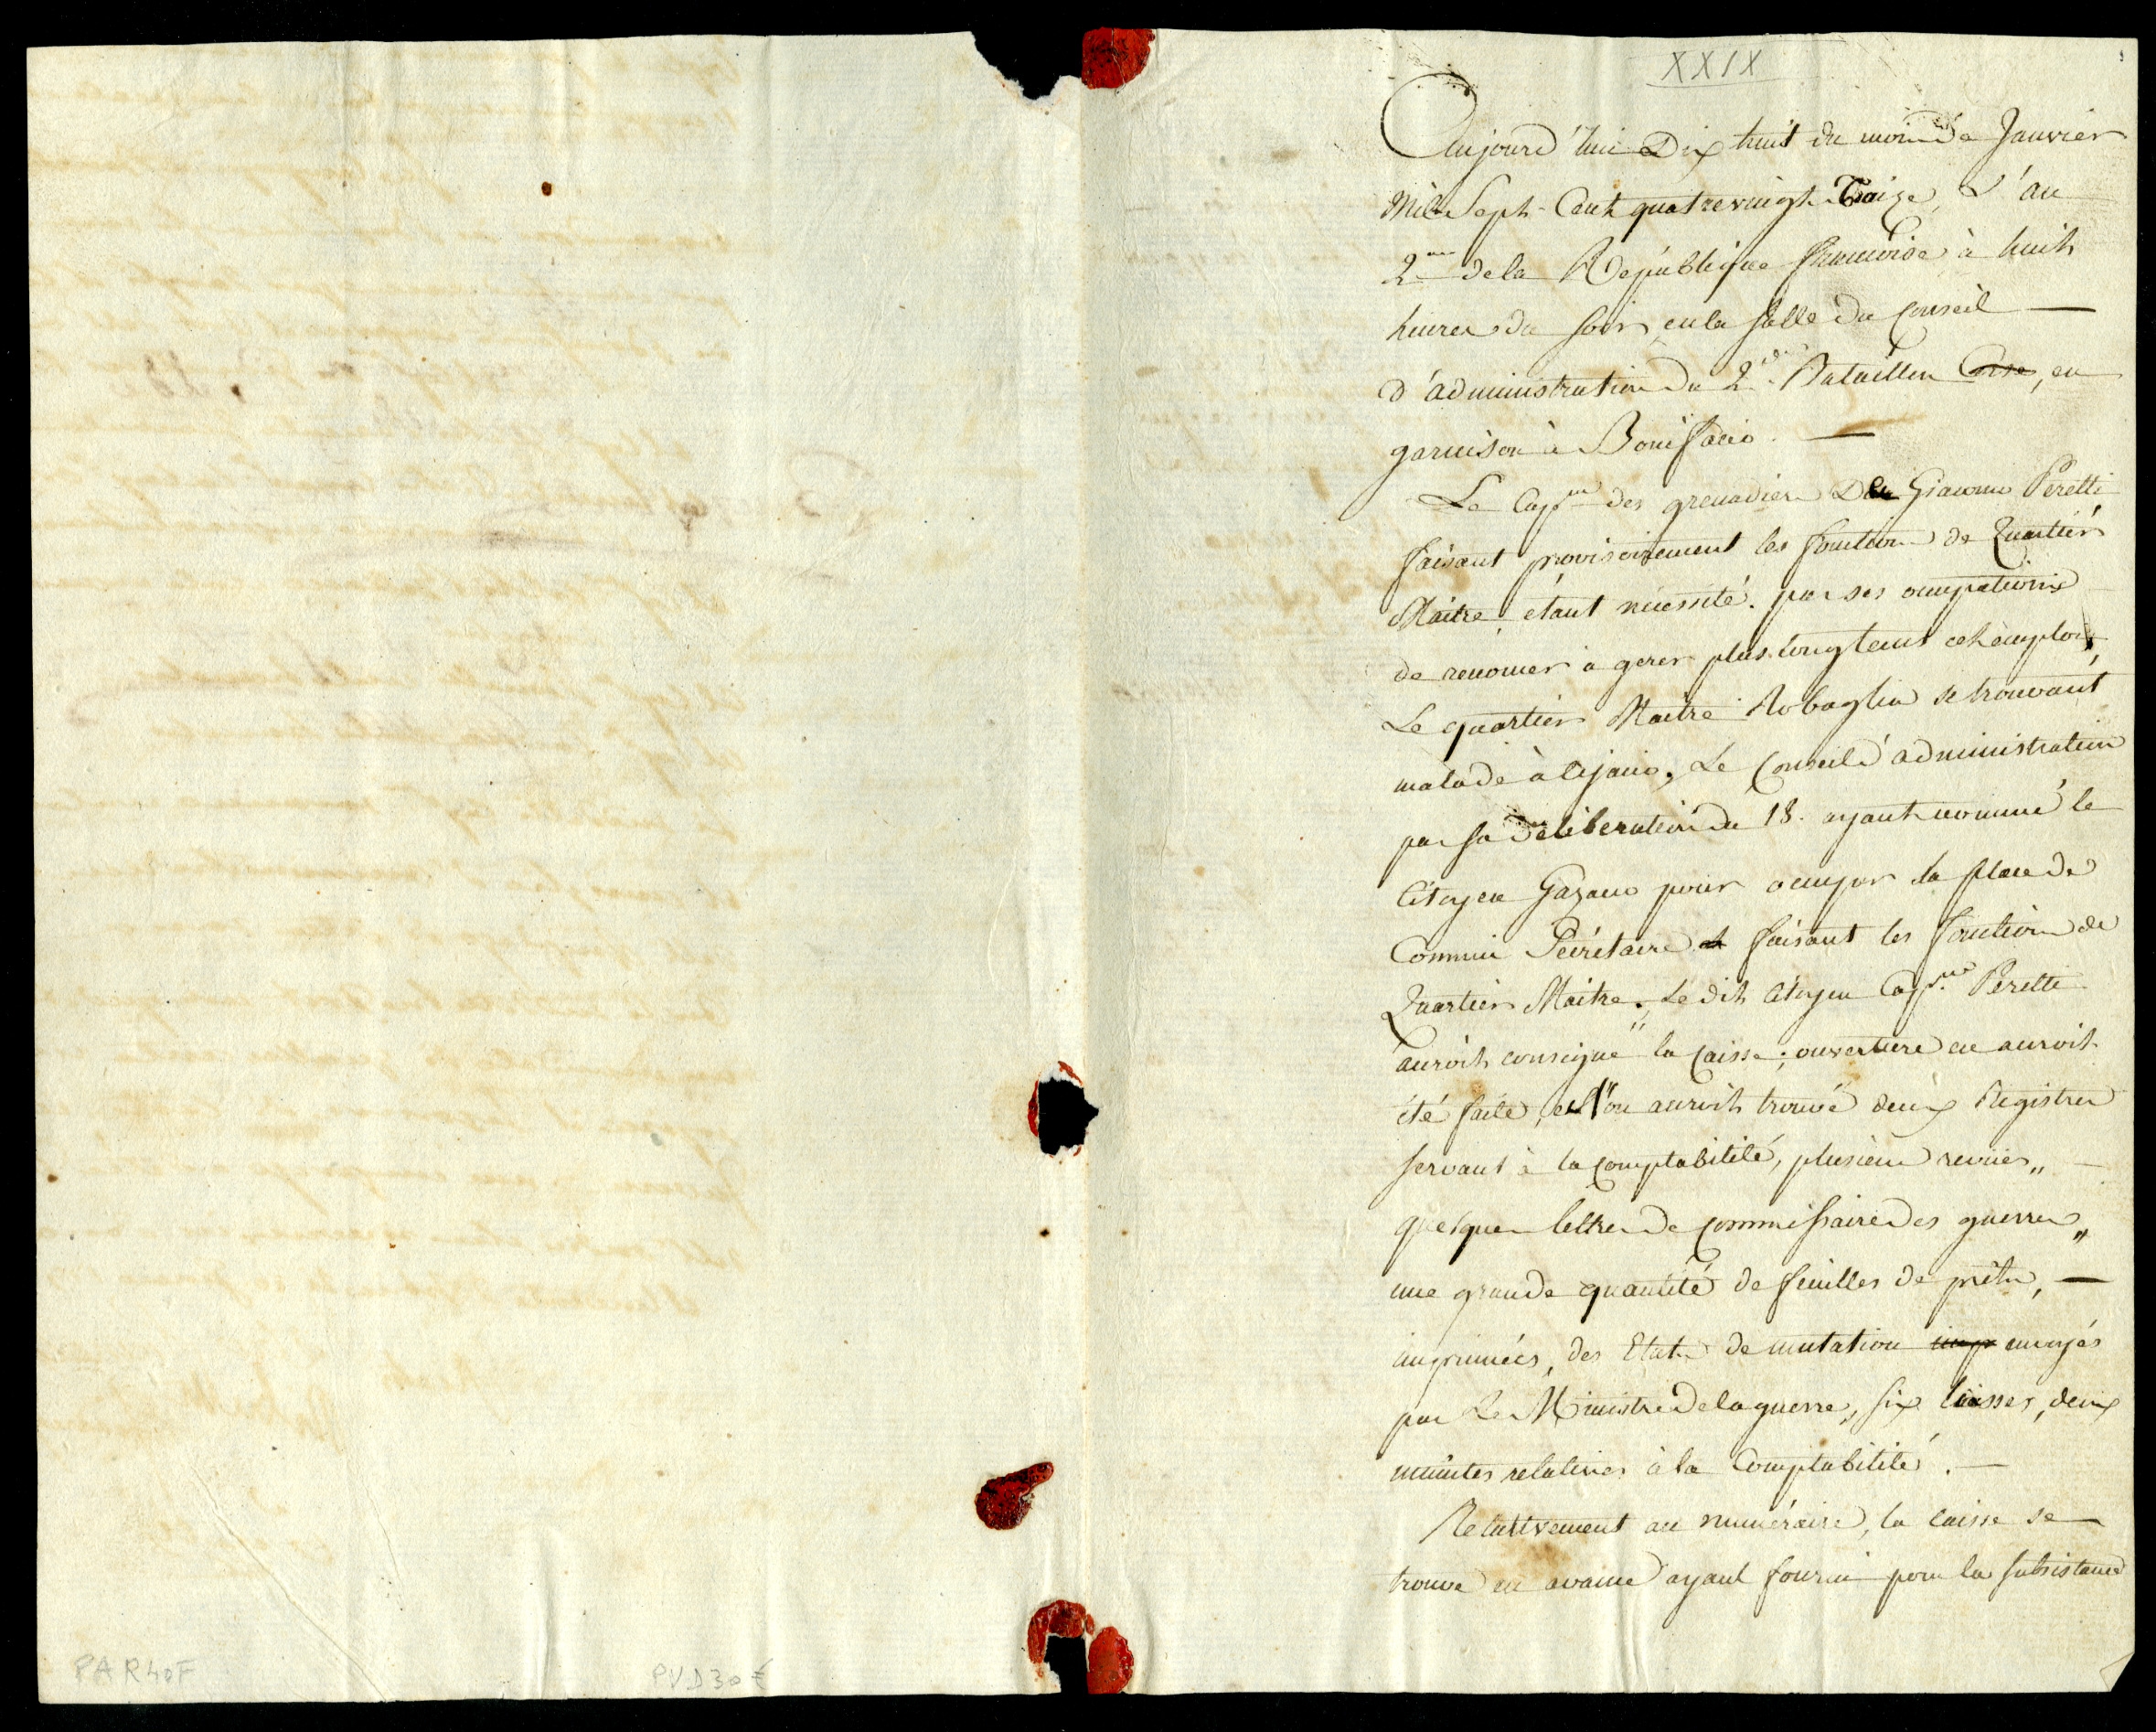 XXIX
Aujourd'hui Dix huit du mois de Janvier
Mil Sept-Cent quatrevingt Traize, L'an
2me de la République francoise à huit
heures du soir, en la salle du Conseil —
d'administration du 2d. Bataillon Corse, en
garnison à Bonifacio. —
Le Capne des grenadiers De Giacomi Peretti
faisant provisoirement les fonctions de Quartier
Maitre, étant necessité. par ses occupations
de renoncer à gerer plus longtems cet emploi,
Le quartier Maitre Robaglia se trouvant
malade à Ajacio, Le Conseil d'administration
par sa deliberation du 18. ayant nommé le
Citoyen Gazano pour occuper la place de
Commis Secrétaire et faisant les fonctions de
Quartier Maitre. Le dit Citoyen Capne Peretti
auroit consigné la Caisse; ouverture en auroit
été faite, et l'on auroit trouvé deux Registres
servant à la comptabilité, plusieurs revues,, —
quelques lettres de Commissaire des guerres,,
une grande quantité de feuilles de prêts, —
imprimées, des Etats de mutation imp envoyés
par Le Ministre de la guerre, six liasses, deux
minutes relatives à la Comptabilité. —
Relativement au numéraire, la caisse se
trouve en avance ayant fourni pour la subsistance
PAR40F
PVD30€